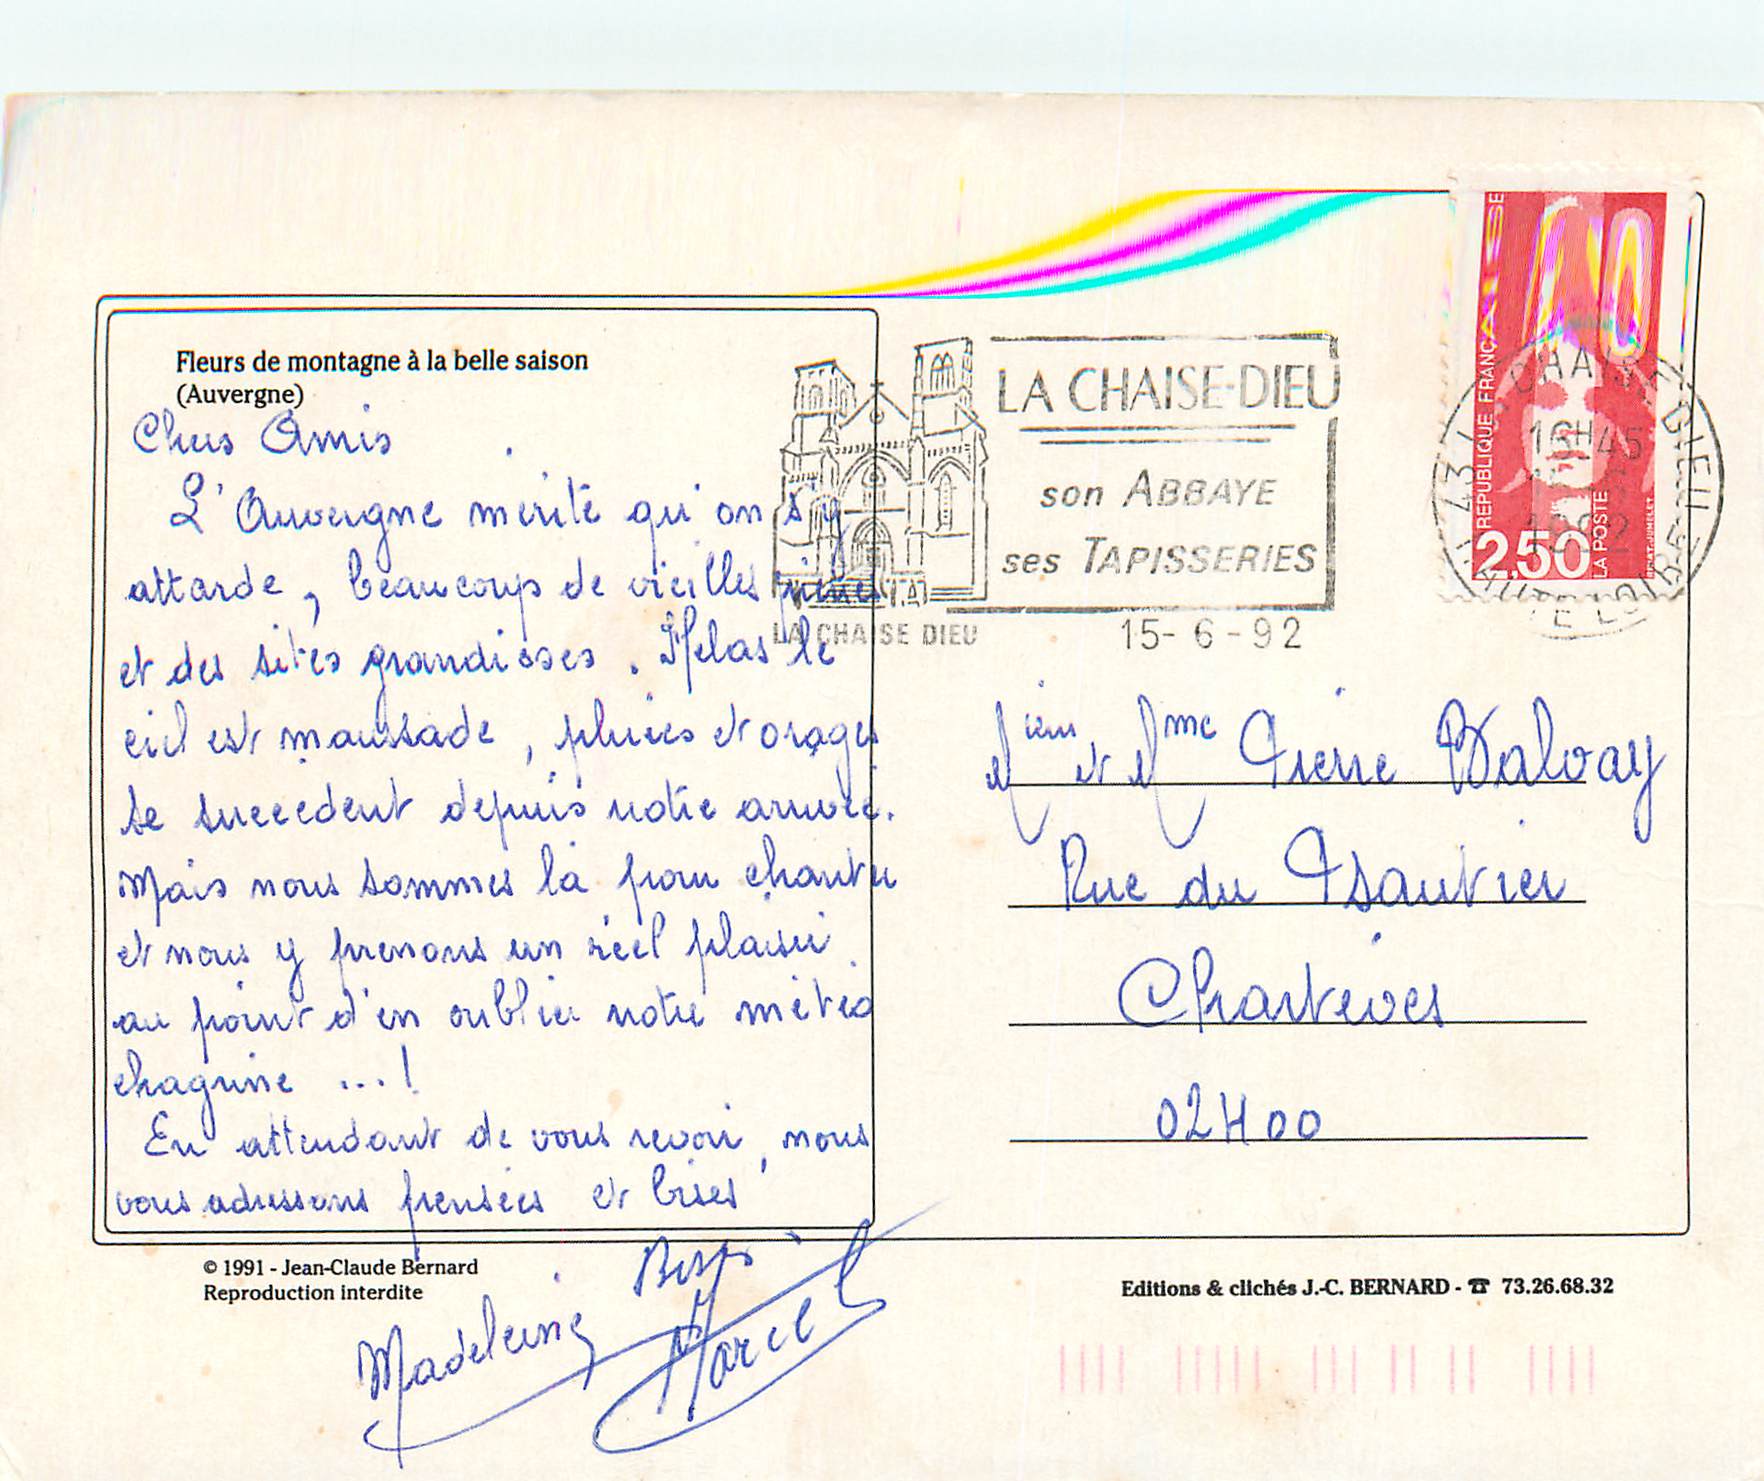 Fleurs de montagne à la belle saison
(Auvergne)
Chers Amis
L'Auvergne mérite qu'on s'y
attarde, beaucoup de vieilles pierres
et des sites grandioses. Hélas le
ciel est maussade, pluies et orages
se succèdent depuis notre arrivée.
Mais nous sommes là pour chanter
et nous y prenons un réel plaisir
au point d'en oublier notre météo
chagrine ...!
En attendant de vous revoir, nous
vous adressons pensées et bises
Madeleine
Marcel
© 1991 - Jean-Claude Bernard
Reproduction interdite
LA CHAISE-DIEU
son ABBAYE
ses TAPISSERIES
LA CHAISE DIEU
15-6-92
REPUBLIQUE FRANÇAISE
2,50
LA POSTE
LA CHAISE DIEU
16H45
1992
43
HAUTE LOIRE
Mr et Mme Pierre
Rue du
Chartèves
02400
Editions & clichés J.-C. BERNARD - ☎ 73.26.68.32